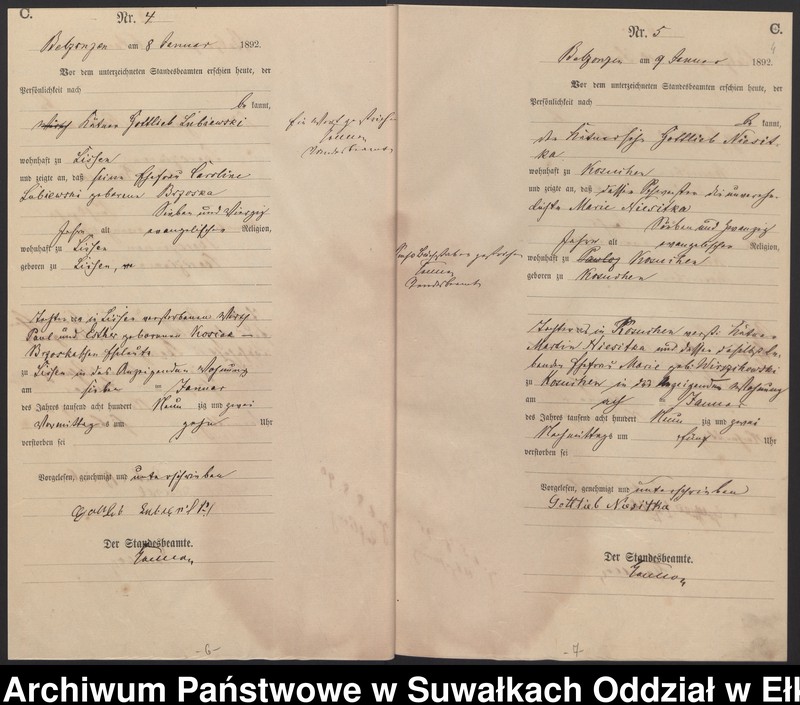 C.
Nr. 4
Belzonzen am 8 Januar 1892.
Vor dem unterzeichneten Standesbeamten erschien heute, der
Persönlichkeit nach
be kannt,
Wirth Kätner Gottlieb Lubiewski
wohnhaft zu Lissen
und zeigte an, daß seine Ehefrau Caroline
Lubiewski geborene Brzoska
Sieben und Vierzig
Jahre alt evangelischer Religion,
wohnhaft zu Lissen
geboren zu Lissen,
Tochter in Lissen verstorbenen Wirth
Paul und Esther geborenen
Brzoskaschen Eheleute
zu Lissen in des Anzeigenden Wohnung
am sieben Januar
des Jahres tausend acht hundert Neun zig und zwei
Vormittags um zehn Uhr
verstorben sei
Vorgelesen, genehmigt und unterschrieben
Gottlieb
Der Standesbeamte.
-6-
Ein Wort gestrichen
Standesbeamte
C.
Nr. 5
Belzonzen am 9 Januar 1892.
Vor dem unterzeichneten Standesbeamten erschien heute, der
Persönlichkeit nach
be kannt,
der Kätnersohn Gottlieb Niesit-
ka
wohnhaft zu Kosuchen
und zeigte an, daß dessen Schwester die unverehe-
lichte Marie Niesitka
Sieben und Zwanzig
Jahre alt evangelischer Religion,
wohnhaft zu Kosuchen
geboren zu Kosuchen
Tochter des in Kosuchen verst. Kätner
Martin Niesitka und dessen daselbst le-
bender Ehefrau Marie geb.
zu Kosuchen in des Anzeigenden Wohnung
am acht Januar
des Jahres tausend acht hundert Neun zig und zwei
Nachmittags um fünf Uhr
verstorben sei
Vorgelesen, genehmigt und unterschrieben
Gottlieb Niesitka
Der Standesbeamte.
-7-
Buchstaben gestrichen
Standesbeamte
Archiwum Państwowe w Suwałkach Oddział w Ełk